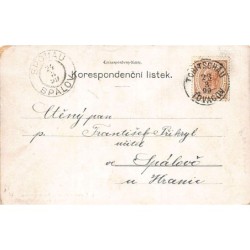 Correspondenzkarte.
Korespondenční lístek.
SPÁLOV
TOVAČOV
Ctěný pan
pan František Přikryl
ve Spálově
u Hranic